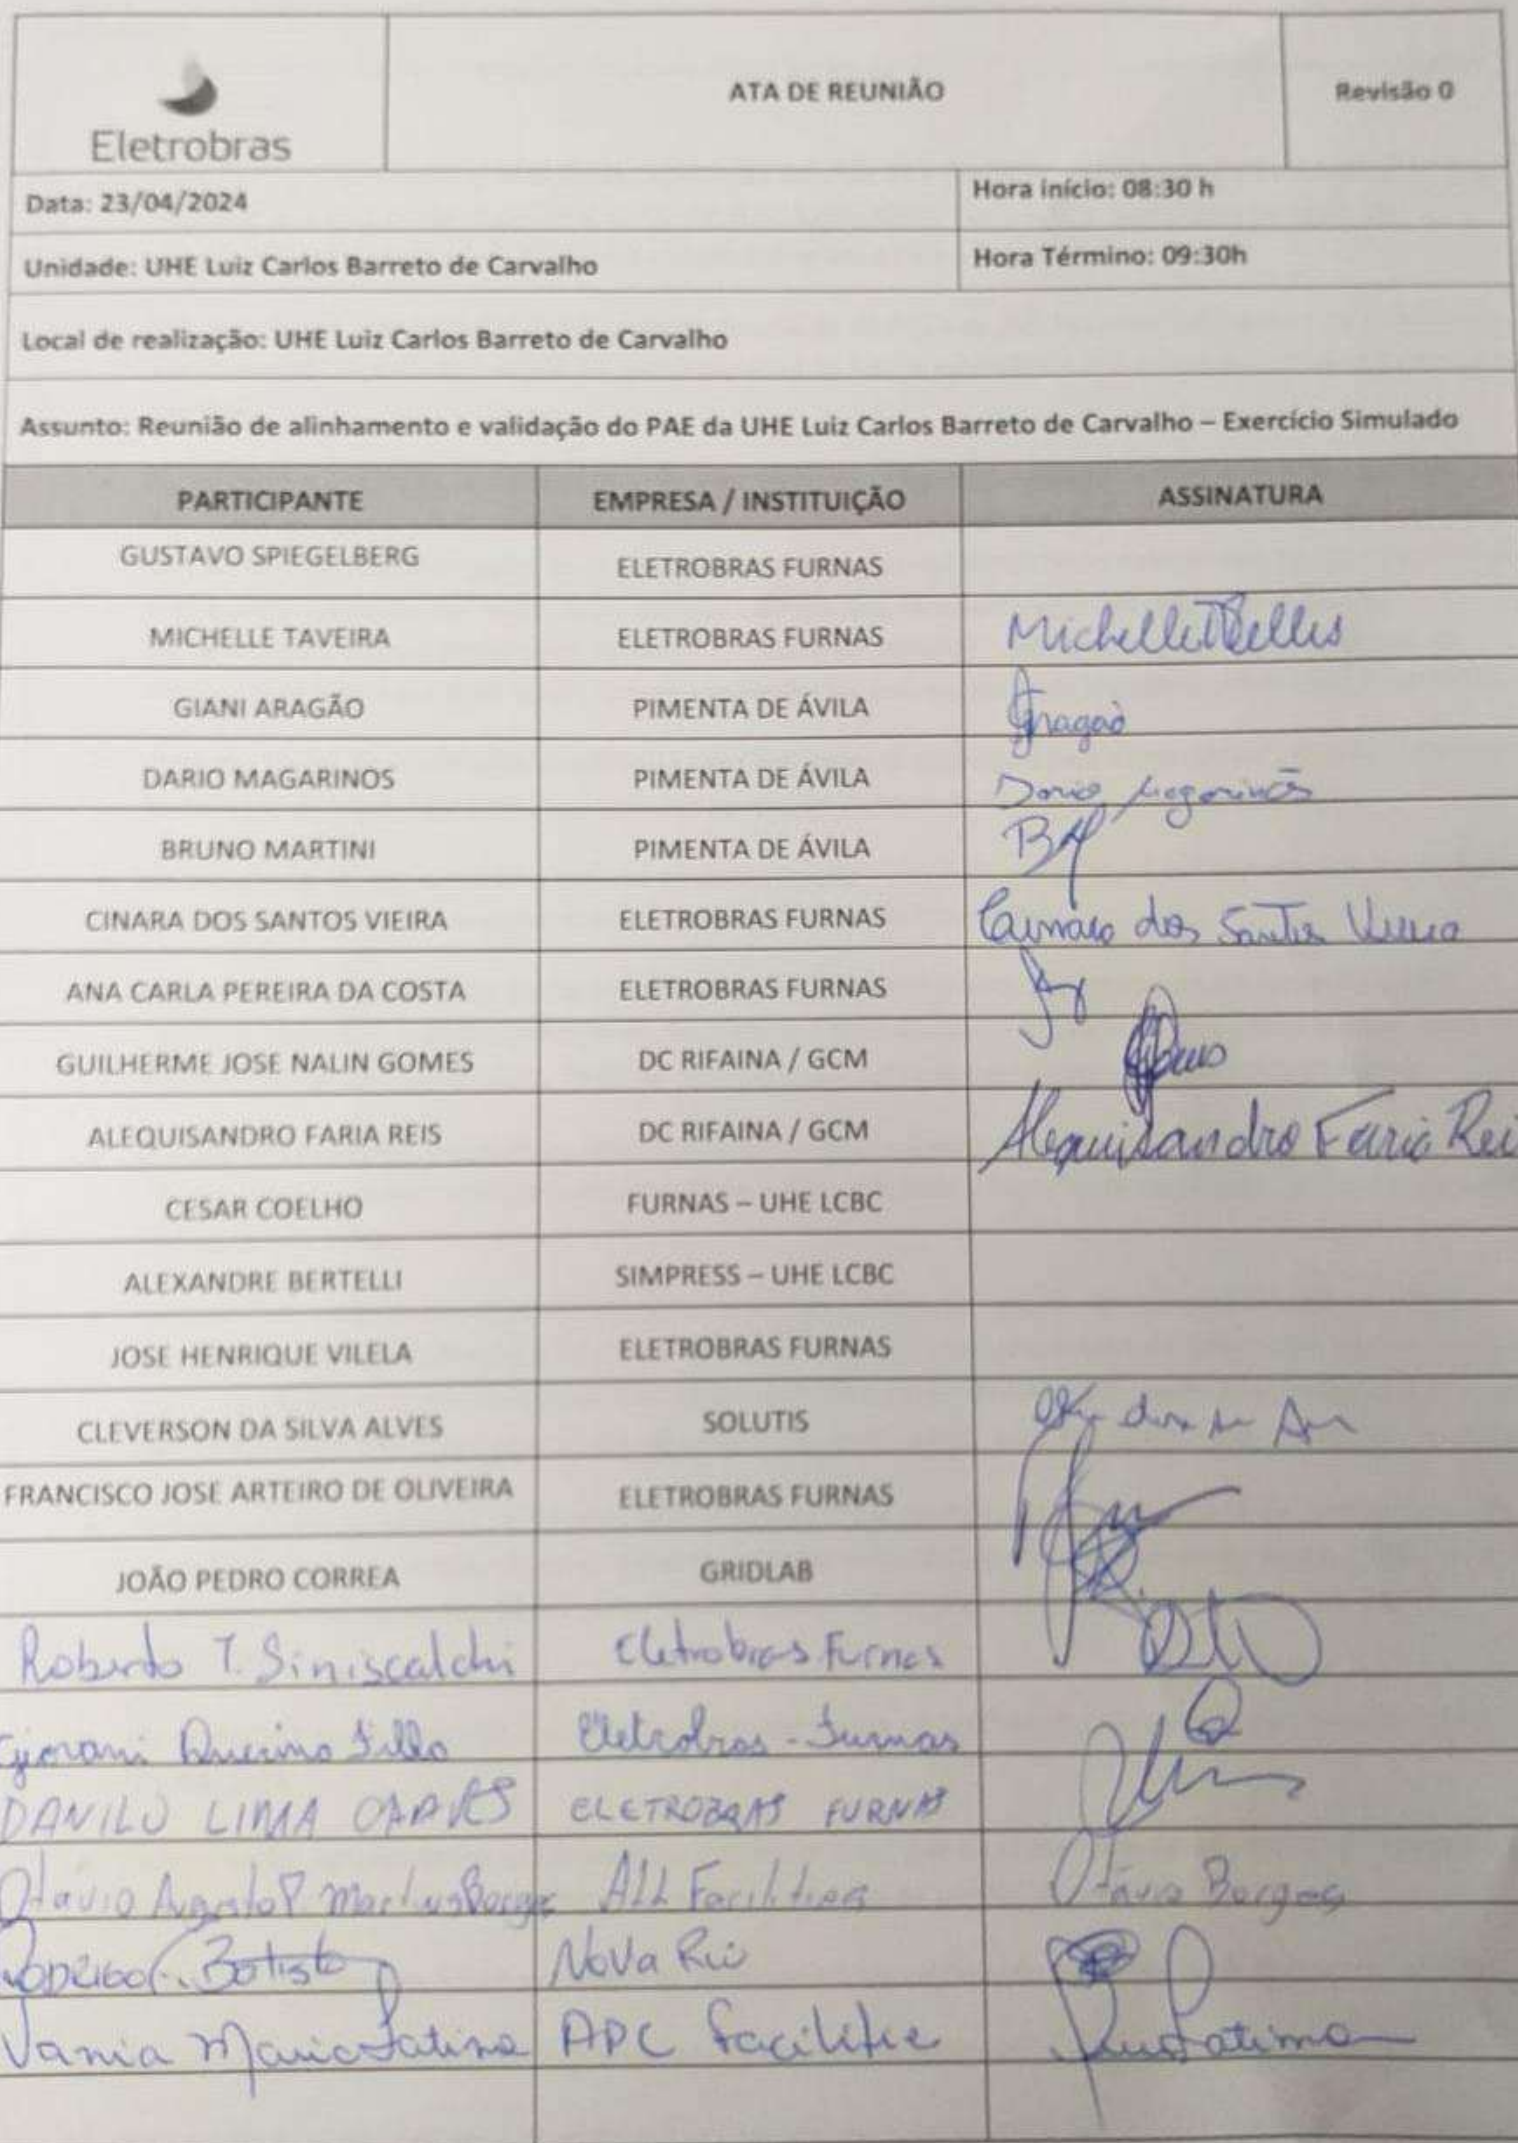 Eletrobras
ATA DE REUNIÃO
Revisão 0
Data: 23/04/2024
Hora início: 08:30 h
Unidade: UHE Luiz Carlos Barreto de Carvalho
Hora Término: 09:30h
Local de realização: UHE Luiz Carlos Barreto de Carvalho
Assunto: Reunião de alinhamento e validação do PAE da UHE Luiz Carlos Barreto de Carvalho – Exercício Simulado
PARTICIPANTE EMPRESA / INSTITUIÇÃO ASSINATURA
GUSTAVO SPIEGELBERG ELETROBRAS FURNAS
MICHELLE TAVEIRA ELETROBRAS FURNAS Michelle
GIANI ARAGÃO PIMENTA DE ÁVILA Aragão
DARIO MAGARINOS PIMENTA DE ÁVILA Dario Magarinos
BRUNO MARTINI PIMENTA DE ÁVILA
CINARA DOS SANTOS VIEIRA ELETROBRAS FURNAS dos Santos Vieira
ANA CARLA PEREIRA DA COSTA ELETROBRAS FURNAS
GUILHERME JOSE NALIN GOMES DC RIFAINA / GCM
ALEQUISANDRO FARIA REIS DC RIFAINA / GCM Alequisandro Faria Rei
CESAR COELHO FURNAS – UHE LCBC
ALEXANDRE BERTELLI SIMPRESS – UHE LCBC
JOSE HENRIQUE VILELA ELETROBRAS FURNAS
CLEVERSON DA SILVA ALVES SOLUTIS
FRANCISCO JOSE ARTEIRO DE OLIVEIRA ELETROBRAS FURNAS
JOÃO PEDRO CORREA GRIDLAB
Roberto T. Siniscalchi Eletrobras Furnas
Eletrobras - Furnas
DANILO LIMA ELETROBRAS FURNAS
Otavio Borges All Facilities Otavio Borges
Batista Nova Rio
Vania Maria Fatima APC Facilitie Fatima